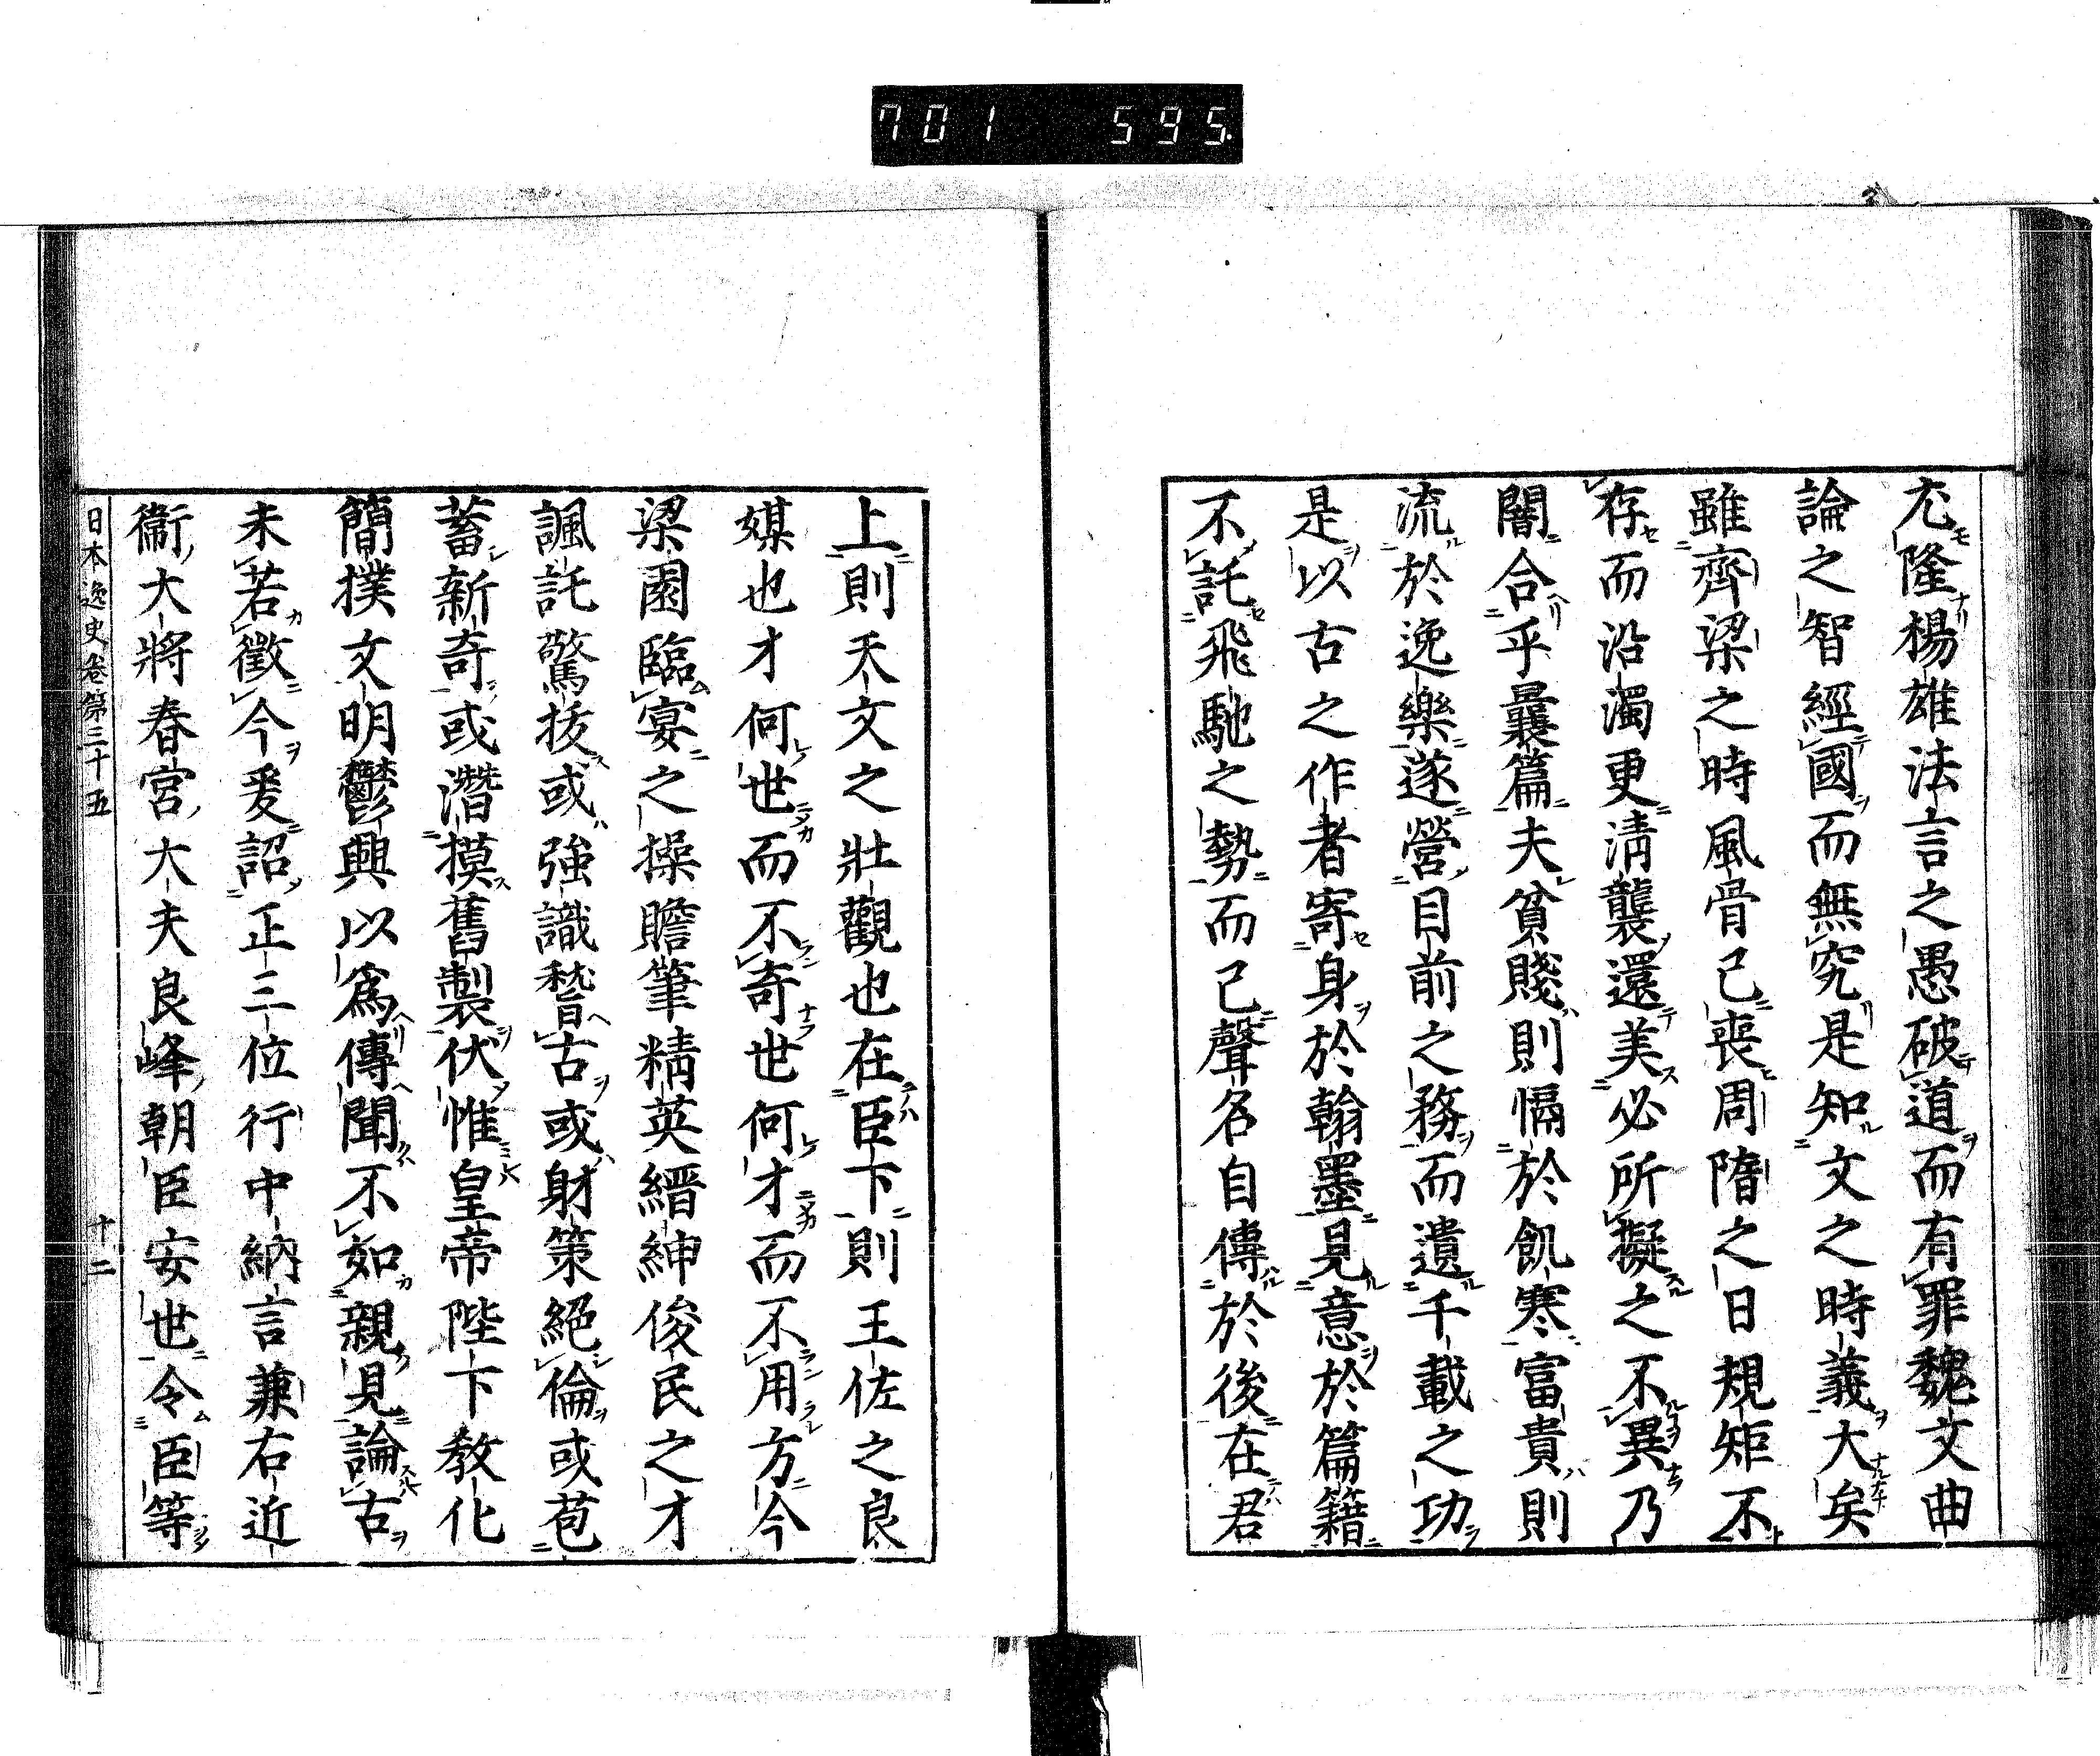 701 595
尤隆揚雄法言之愚破道而有罪魏文曲
論之智經國而無究是知文之時義大矣
雖齊梁之時風骨已喪周隋之日規矩不
存而沿濁更淸襲還美必所擬之不異乃
闇合乎曩篇夫貧賤則懾於飢寒富貴則
流於逸樂遂營目前之務而遺千載之功
是以古之作者寄身於翰墨見意於篇籍
不託飛馳之勢而已聲名自傳於後在君
上則天文之壯觀也在臣下則王佐之良
媒也才何世而不奇世何才而不用方今
梁園臨宴之操贍筆精英縉紳俊民之才
諷託驚拔或強識稽古或射策絕倫或苞
蓄新奇或潛摸舊製伏惟皇帝陛下敎化
簡撲文明鬱興以爲傳聞不如親見論古
未若徵今爰詔正三位行中納言兼右近
衞大將春宮大夫良峰朝臣安世令臣等
日本逸史卷第三十五 十二